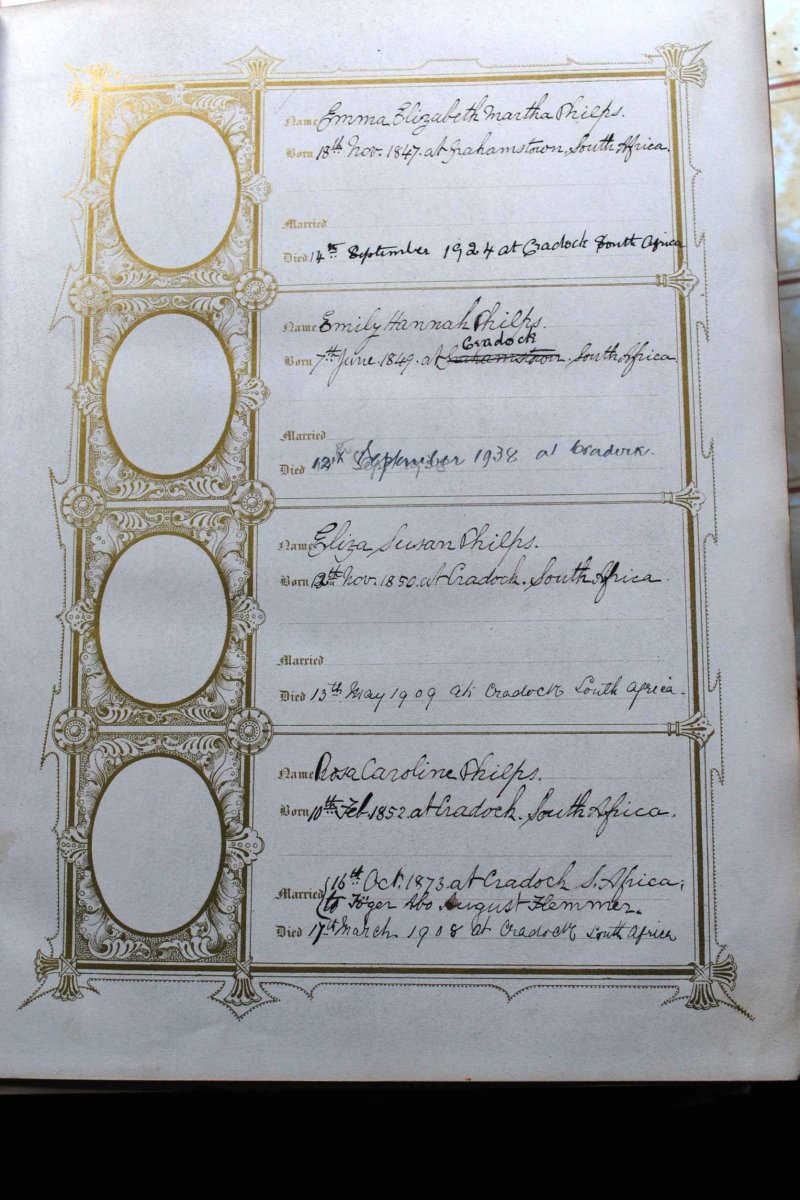 Name Emma Elizabeth Martha Philps.
Born 18th Nov. 1847. at Grahamstown, South Africa.
Married
Died 14th September 1924 at Cradock South Africa
Name Emily Hannah Philps.
Cradock
Born 7th June. 1849. at Grahamstown. South Africa.
Married
Died 12th September 1938 at Cradock.
Name Eliza Susan Philps.
Born 12th Nov. 1850. at Cradock. South Africa.
Married
Died 13th May 1909 at Cradock South Africa.
Name Rosa Caroline Philps.
Born 10th Feb. 1852. at Cradock. South Africa.
Married (16th Oct. 1873. at Cradock S. Africa;
(to Föger Abo August Flemmer.
Died 17th March 1908 at Cradock South Africa